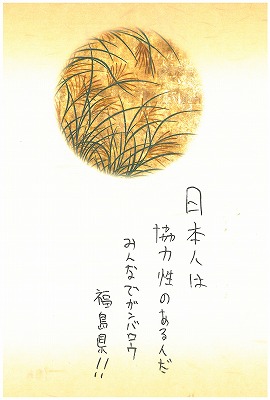 日本人は
協力性のあるんだ
みんなでガンバロウ
福島県!!